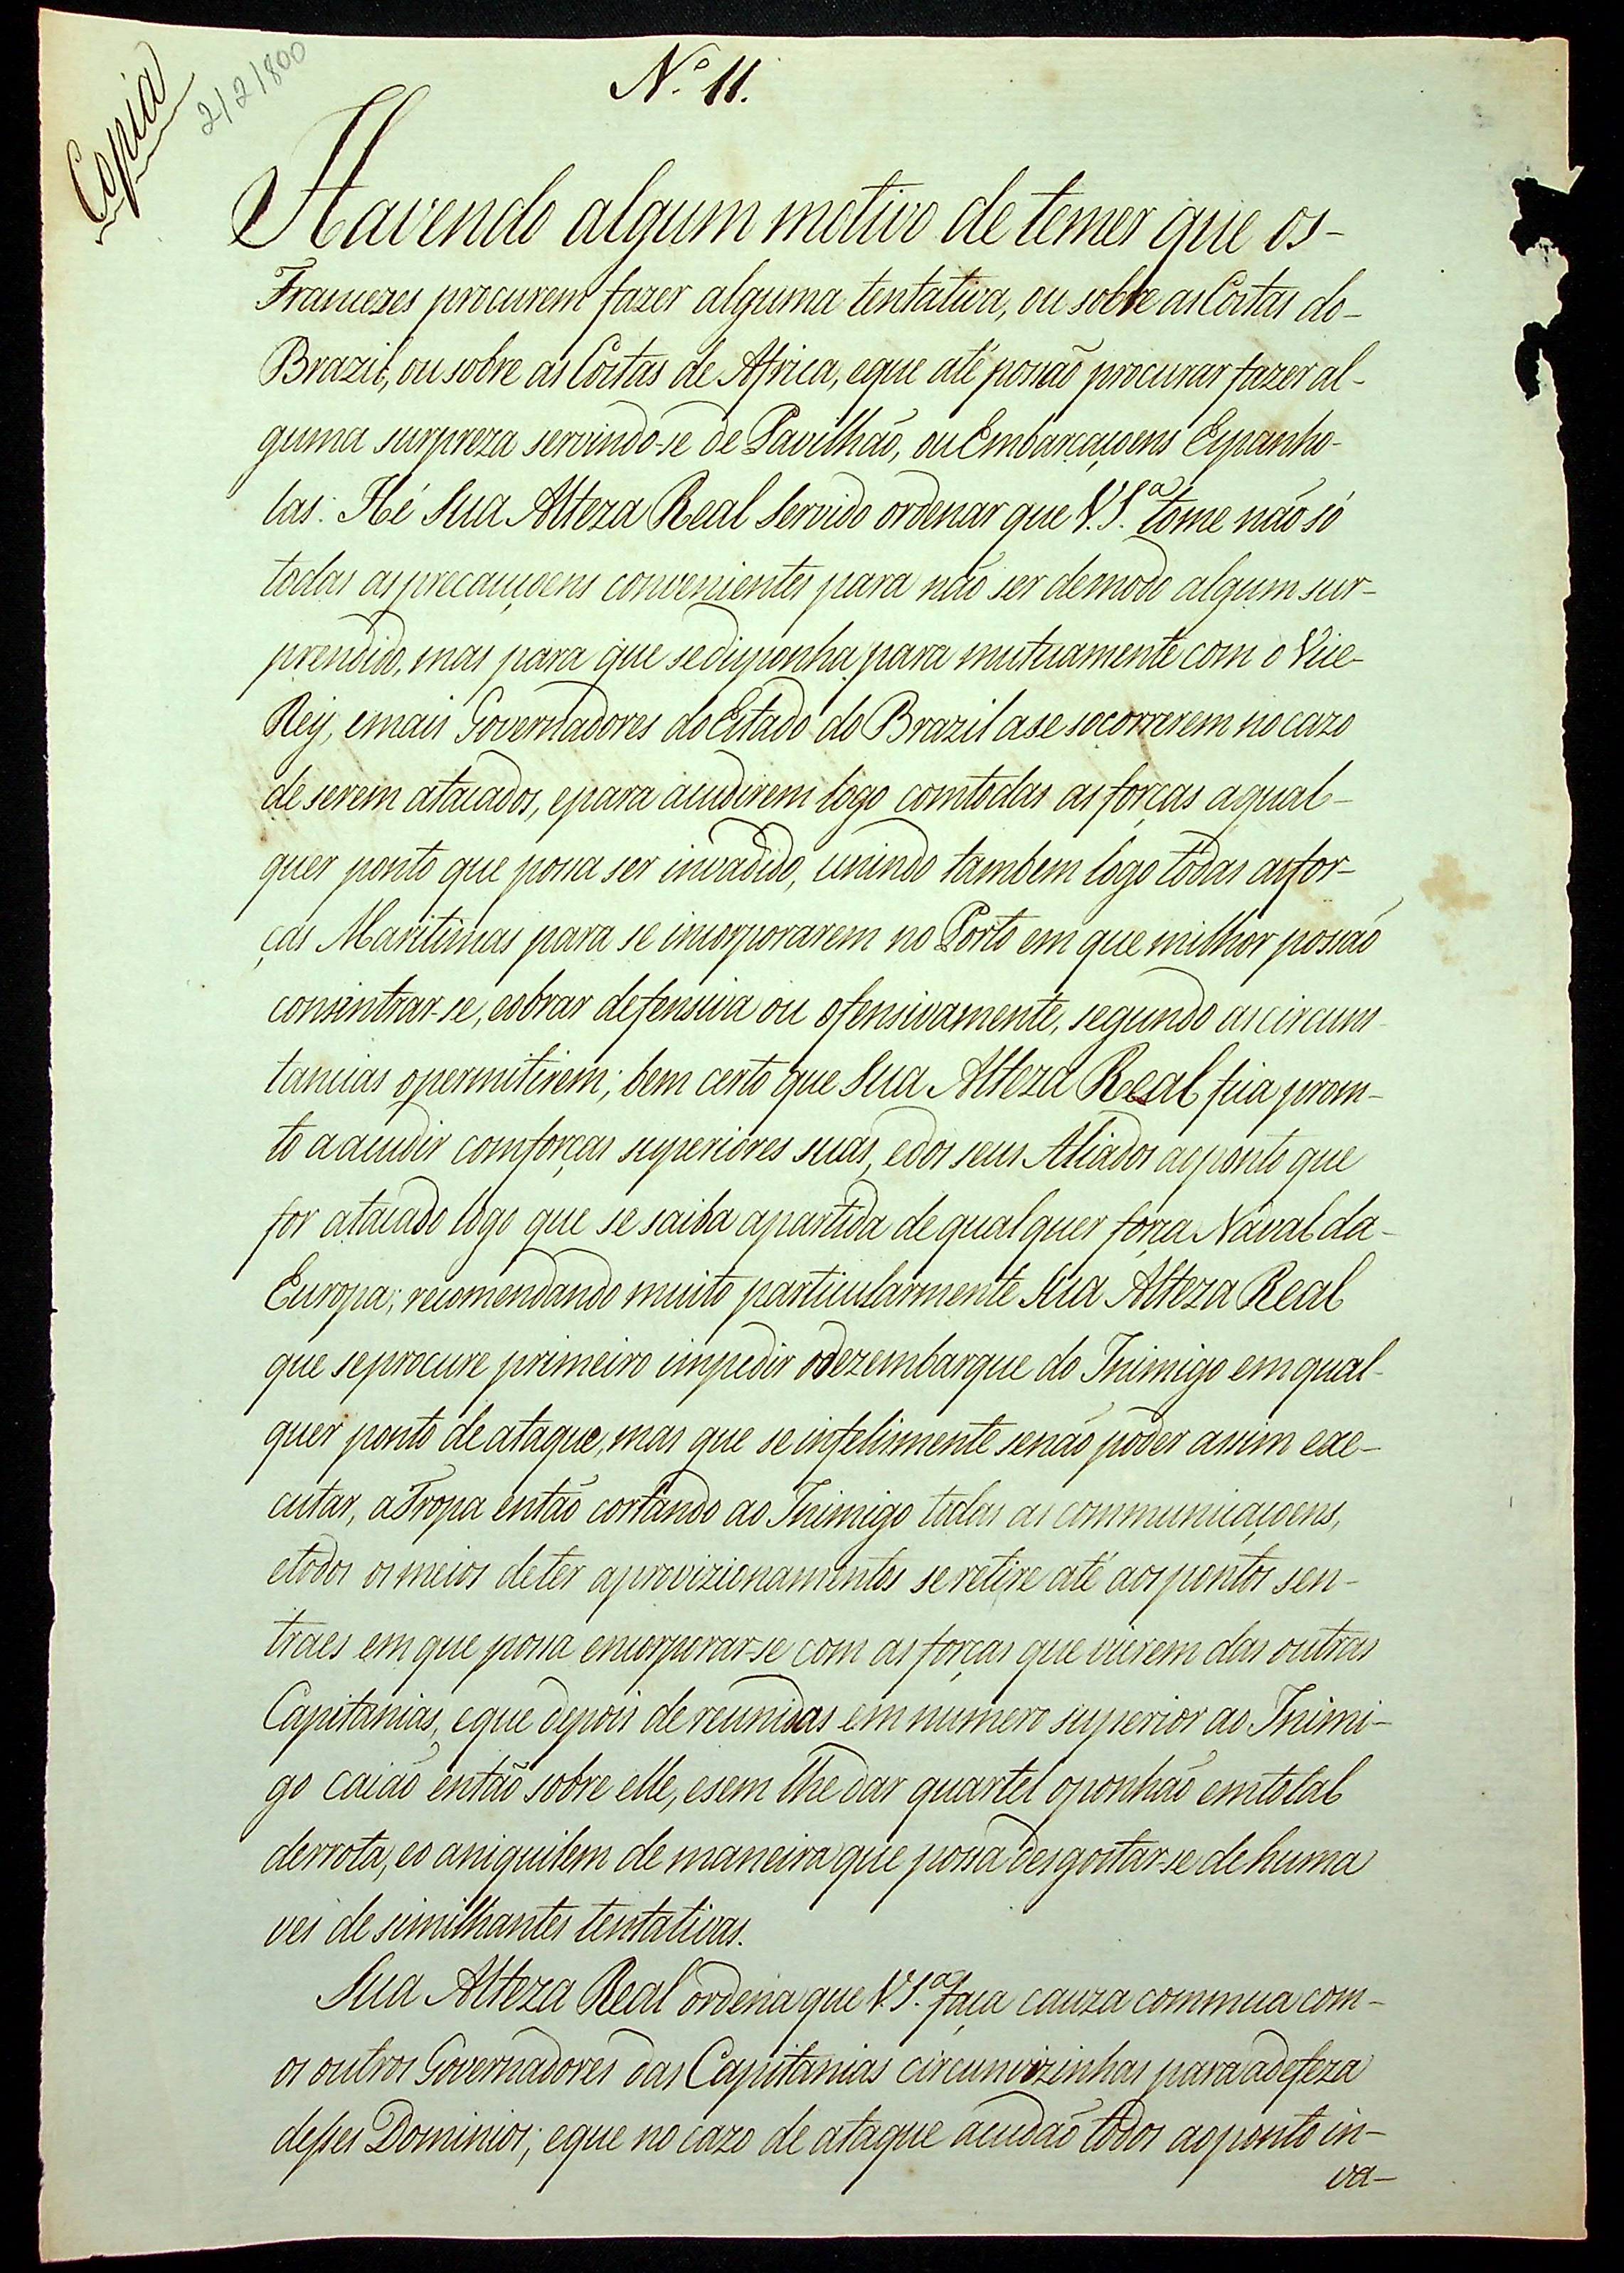 Nº 11.
Copia
2/2/800
Havendo algum motivo de temer que os-
Francezes procurem fazer alguma tentativa, ou sobre as Costas do-
Brazil, ou sobre as Costas de Africa, eque até possão procurar fazer al-
guma surpreza servindo-se de Pavilhão, ou Embarcaçoens Espanho-
las: Hé Sua Alteza Real Servido ordenar que V.S.ª tome não só
todas as precauçoens convenientes para não ser demodo algum sur-
prendido, mas para que sedisponha para mutuamente com o Vice-
Rey, emais Governadores do Estado do Brazil ase socorrerem no cazo
de serem atacados, epara acudirem logo comtodas as forças aqual-
quer ponto que possa ser invadido, unindo tambem logo todas asfor-
ças Maritimas para se incorporarem no Porto em que milhor possão
consintrar-se, eobrar defensiva ou ofensivamente, segundo as circuns-
tancias opermitirem; bem certo que Sua Alteza Real fica prom-
to aacudir comforças superiores suas, edos seus Aliados aoponto que
for atacado logo que se saiba apartida de qualquer força Naval da-
Europa; recomendando muito particularmente Sua Alteza Real
que seprocure primeiro impedir odezembarque do Inimigo emqual-
quer ponto de ataque, mas que se infelismente senão poder assim exe-
cutar, aTropa então cortando ao Inimigo todas as communicaçoens,
etodos osmeios deter aprovizionamentos seretire até aospontos sen-
traes em que possa encorporar-se com as forças que vierem das outras
Capitanias, eque depois de reunidas em numero superior ao Inimi-
go caião então sobre elle, esem lhe dar quartel oponhão emtotal
derrota, eo aniquilem de maneira que possa desgostar-se de huma
ves de similhantes tentativas.
Sua Alteza Real ordena que V.S.ª faça cauza commua com-
os outros Governadores das Capitanias circunvizinhas paraadefeza
desses Dominios; eque no cazo de ataque acudão todos aoponto in-
va-